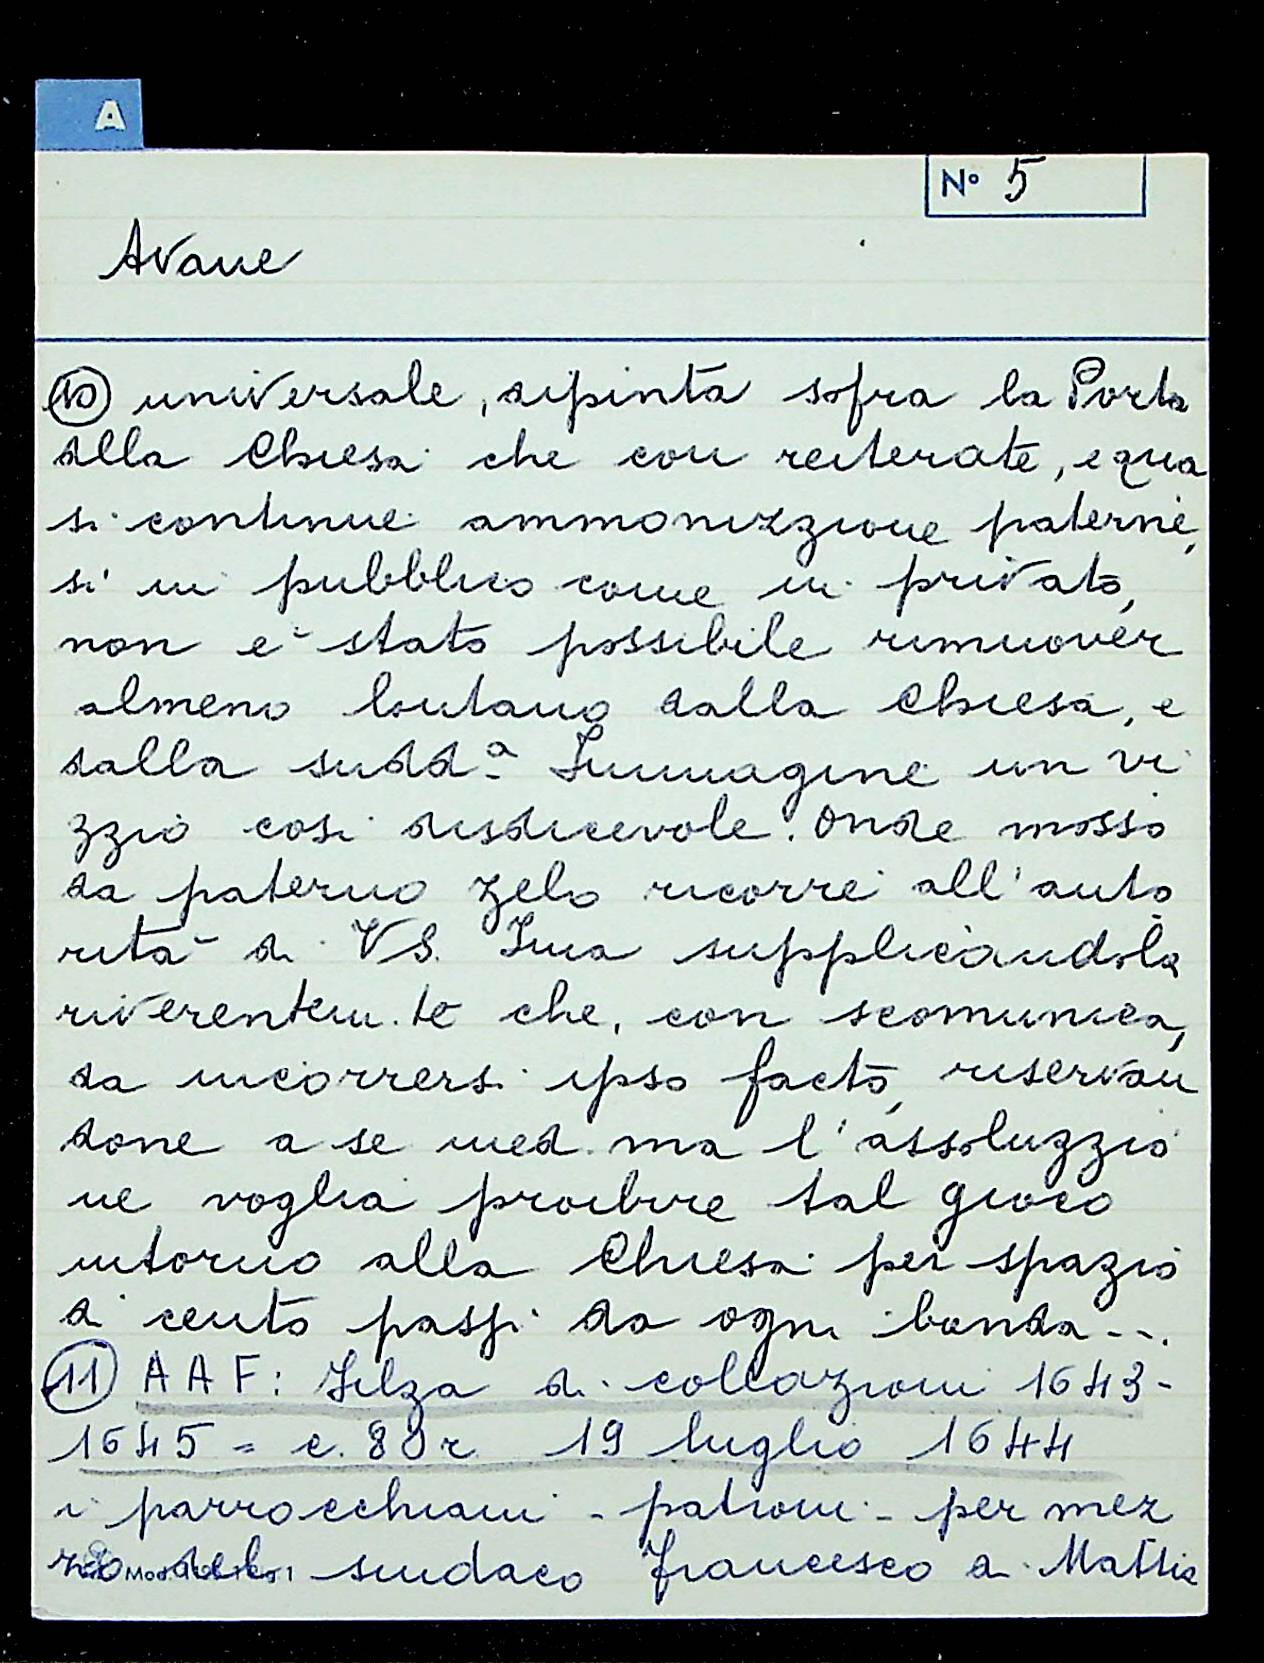 A
N° 5
Avane
(10) universale, dipinta sopra la Porta
della Chiesa che con reiterate, e qua
si continue ammonizzione paterne,
sì in pubblico come in privato,
non e' stato possibile rimuover
almeno lontano dalla Chiesa, e
dalla sudd.a Immagine un vi
zzio così disdicevole. Onde mosso
da paterno zelo ricorre all'auto
rità di VS. Ima supplicandola
riverentem.te che, con scomunica,
da incorrersi ipso facto, riservan
done a se med.ma l'assoluzzio
ne voglia proibire tal giuoco
intorno alla Chiesa per spazio
di cento passi da ogni banda...
(11) AAF: Filza di collazioni 1643-
1645 = c. 80r 19 luglio 1644
i parrocchiani - patroni - per mez
zo del sindaco Francesco di Mattia